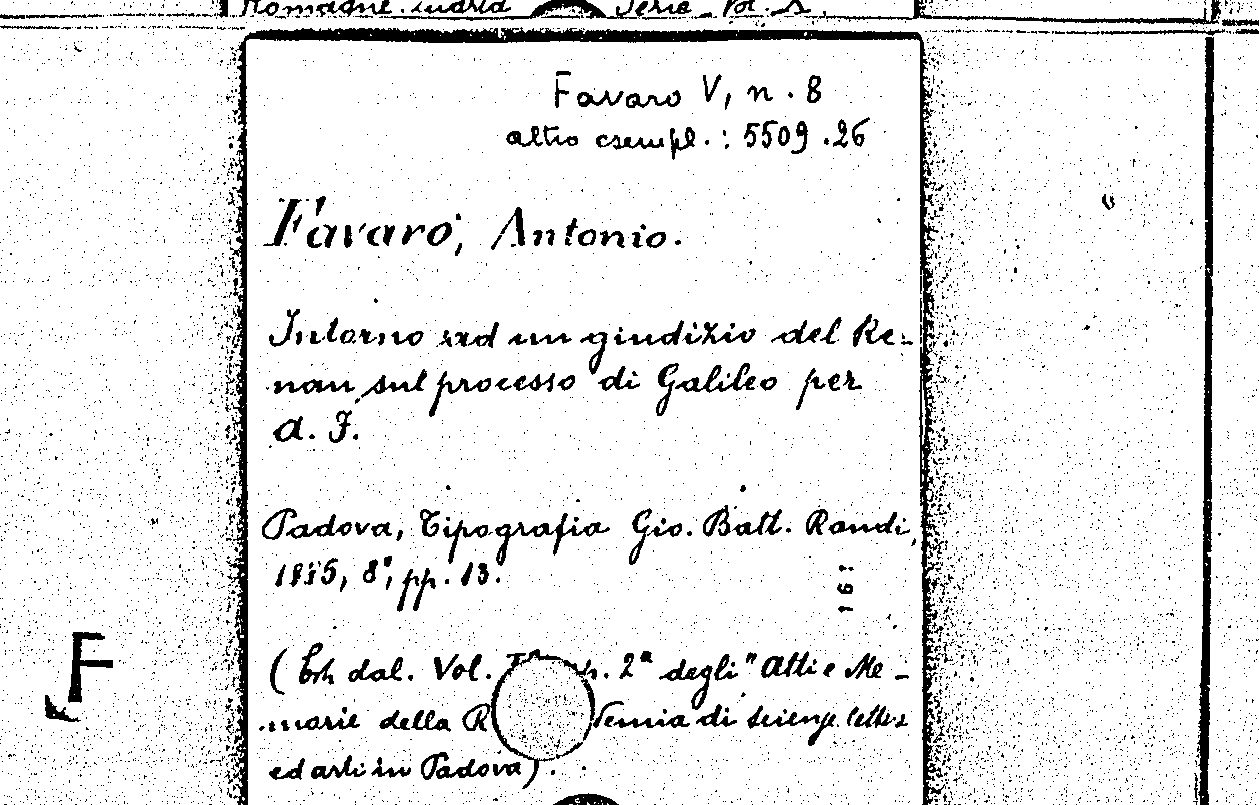 Serie Vol. X.
Favaro V, n. 8
altro esempl. : 5509 .26
Favaro, Antonio.
Intorno ad un giudizio del Re-
nan sul processo di Galileo per
A. F.
Padova, Tipografia Gio. Batt. Randi,
1885, 8°, pp. 13.
16
F
(Estr. dal. Vol. 2ª degli "Atti e Me-
morie della R demia di scienze lettere
ed arti in Padova).